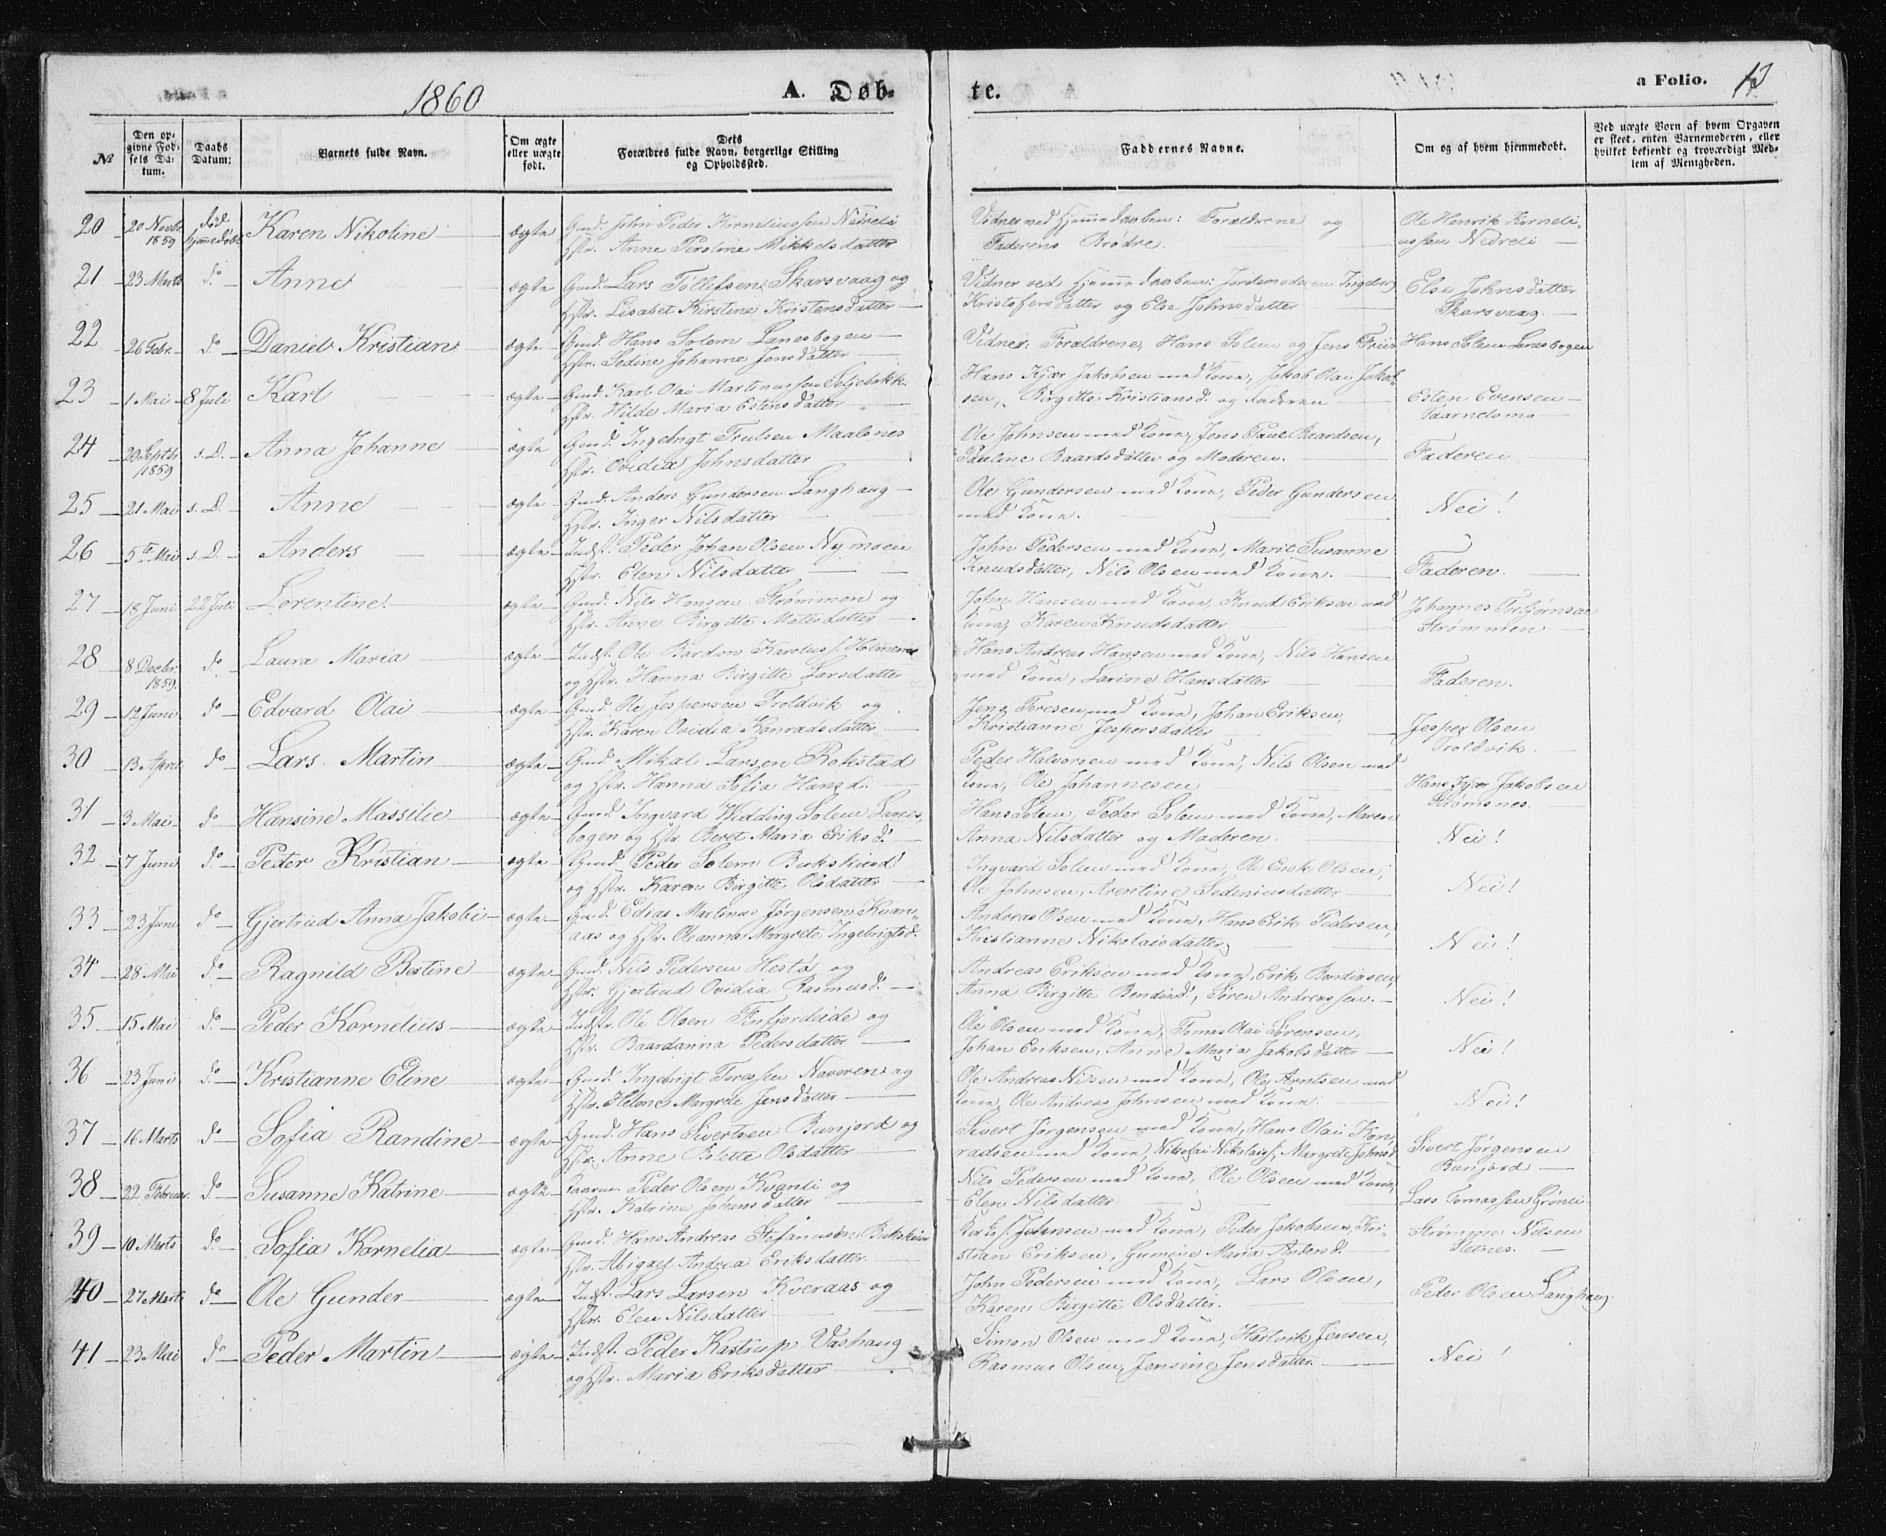 1860 A. Døb- te. a Folio. 13
№ Den opgivne Fødsels Datum. Daabs Datum: Barnets fulde Navn. Om ægte eller uægte født. Dets Forældres fulde Navn, borgerlige Stilling og Opholdsted. Faddernes Navne. Om og af hvem hjemmedøbt. Ved uægte Born af hvem Opgaven er skeet, enten Barnemoderen, eller hvilket bekjendt og troværdigt Medlem af Menigheden.
20 20 Novbr. 1859 død hjemmedøbt Karen Nikoline ægte Gmd. John Peder Korneliussen Nedreli Vidner ved Hjemmedaaben: Forældrene og Ole Henrik Korneli-
Hstr. Anne Peroline Mikkelsdatter Faderens Brødre. ussen Nedreli
21 23 Marts do Anne ægte Gmd. Lars Tollefsen Skarsvaag og Vidner ved Hjemmedaaben: Jordemoderen Ingeborg Else Johnsdatter
Hstr. Lisabet Kirstine Kristensdatter Kristofersdatter og Else Johnsdatter Skarsvaag.
22 26 Febr. do Daniel Kristian ægte Gmd. Hans Solem Lanesbogen Vidner: Forældrene, Hans Solem og Jens Friis Hans Solem Lanesbogen
Hstr. Sedine Johanne Jensdatter
23 1 Mai 8 Juli Karl ægte Gmd. Karl Olai Martinussen Seljebakk. Hans Kjær Jakobsen med Kone, Jakob Olai Jakob- Esten Evensen
Hstr. Hilde Maria Estensdatter sen, Birgitte Kristiansd. og Faderen Baarnelsmo
24 29 Septbr. 1859 s.D. Anna Johanne ægte Gmd. Ingebrigt Trulsen Maalsnes Ole Johnsen med Kone, Jens Paul Baardsen, Faderen
Hstr. Ovidia Johnsdatter Pauline Baardsdatter og Moderen.
25 21 Mai s.D. Anne ægte Gmd. Anders Gundersen Langhaug Ole Gundersen med Kone, Peder Gundersen Nei!
Hstr. Inger Nilsdatter med Kone.
26 5te Mai s.D. Anders ægte Indst. Peder Johan Olsen Nymoen John Pedersen med Kone, Marit Susanne Faderen.
Hstr. Elen Nilsdatter Knudsdatter, Nils Olsen med Kone.
27 18 Juni 22 Juli Lorentine. ægte Gmd. Nils Hansen Strømmen og John Hansen med Kone, Knud Eriksen med Johannes Torbjørnsen
Hstr. Anne Birgitte Matisdatter Kone, Karen Knudsdatter Strømmen
28 8 Decbr. 1859. do Laura Maria ægte Indst. Ole Bardon Karolus f. Holmene Hans Andreas Hansen med Kone, Nils Hansen Faderen.
og Hstr. Hanna Birgitte Larsdatter med Kone, Larine Hansdatter
29 12 Juni do Edvard Olai ægte Gmd. Ole Jespersen Troldvik og Jens Toresen med Kone, Johan Eriksen, Jesper Olsen
Hstr. Karen Ovidia Konradsdatter Kristianne Jespersdatter Troldvik.
30 13 April do Lars Martin ægte Gmd. Mikal Larsen Rokstad Peder Halvorsen med Kone, Nils Olsen med Hans Kjær Jakobsen
og Hstr. Hanna Sofia Hansd. Kone, Ole Johannesen Strømsnes.
31 3 Mai do Hansine Massilie ægte Gmd. Ingvard Wedding Solem Lanes- Hans Solem, Peder Solem med Kone, Maren Nei!
bogen og Hstr Beret Maria Eriksd. Anna Nilsdatter og Moderen.
32 7 Juni do Peder Kristian ægte Gmd. Peder Solem Bukskind Ingvard Solem med Kone, Ole Erik Olsen, Nei!
og Hstr. Karen Birgitte Olsdatter Ole Johnsen, Arentine Sedeniusdatter
33 23 Juni do Gjertrud Anna Jakobi ægte Gmd. Edias Martinus Jørgensen Kvær- Andreas Olsen med Kone, Hans Erik Pedersen, Nei!
aas og Hstr. Oleanna Margrete Ingebrigtsd. Kristianne Nikolaisdatter
34 28 Mai do Ragnild Bestine ægte Gmd. Nils Pedersen Hestø og Andreas Eriksen med Kone, Erik Bendiksen, Nei!
Hstr. Gjertrud Ovidia Rasmusd. Anna Birgitte Bendiksd., Søren Andreassen.
35 15 Mai do Peder Kornelius ægte Indstr. Ole Olsen Finfjordeide og Ole Olsen med Kone, Tomas Olai Sørensen, Nei!
Hstr. Baardanna Pedersdatter Johan Eriksen, Anne Maria Jakobsdatter
36 23 Juni do Kristianne Eline ægte Gmd. Ingebrigt Toressen Naveren og Ole Andreas Nilsen med Kone, Ole Arntsen med Nei!
Hstr. Helene Margrete Jensdatter Kone, Ole Andreas Johnsen med Kone.
37 16 Marts do Sofia Randine ægte Gmd. Hans Sivertsen Bunjord og Sivert Jørgensen med Kone, Hans Olai Kon- Sivert Jørgensen
Hstr. Anne Bolette Olsdatter radsen med Kone, Nikolai Nikolais f. Margrete Johnsd. Bunjord
38 22 Februar do Susanne Katrine ægte Gaarm. Peder Olsen Kvanli og Nils Pedersen med Kone, Ole Olsen med Kone, Lars Tomassen Grønli
Hstr. Katrine Johansdatter Elen Nilsdatter
39 10 Marts do Sofia Kornelia ægte Gmd. Hans Andreas Stefanusen Bukskin Johnsen med Kone, Peder Jakobsen, Kri- Strømme Nilsen
Hstr. Abigael Andrea Eriksdatter stian Eriksen, Gumene Maria Andersd. Sletnes.
40 27 Marts do Ole Gunder ægte Indst. Lars Larsen Kveraas og John Pedersen med Kone, Lars Olsen, Peder Olsen Langhaug
Hstr. Elen Nilsdatter Karen Birgitte Olsdatter.
41 23 Mai do Peder Martin ægte Indst. Peder Kastrup Vashaug Simon Olsen med Kone, Hartvik Jensen, Nei!
og Hstr. Maria Eriksdatter Rasmus Olsen, Jensine Jensdatter.